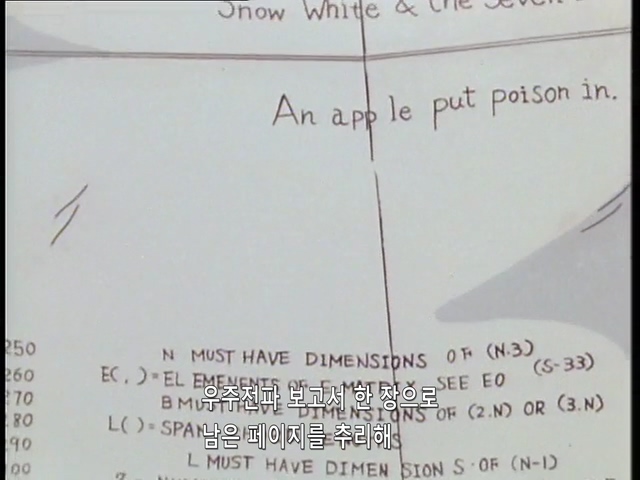 Snow White & the Seven
An apple put poison in.
250 N MUST HAVE DIMENSIONS OF (N.3)
260 E(, )=ELEMENENTS OF E MATRIX SEE EO (S-33)
270 B MUST HAVE DIMENSIONS OF (2.N) OR (3.N)
280 L( )=SPAN
290
L MUST HAVE DIMENSIONS OF (N-1)
우주전파 보고서 한 장으로
남은 페이지를 추리해